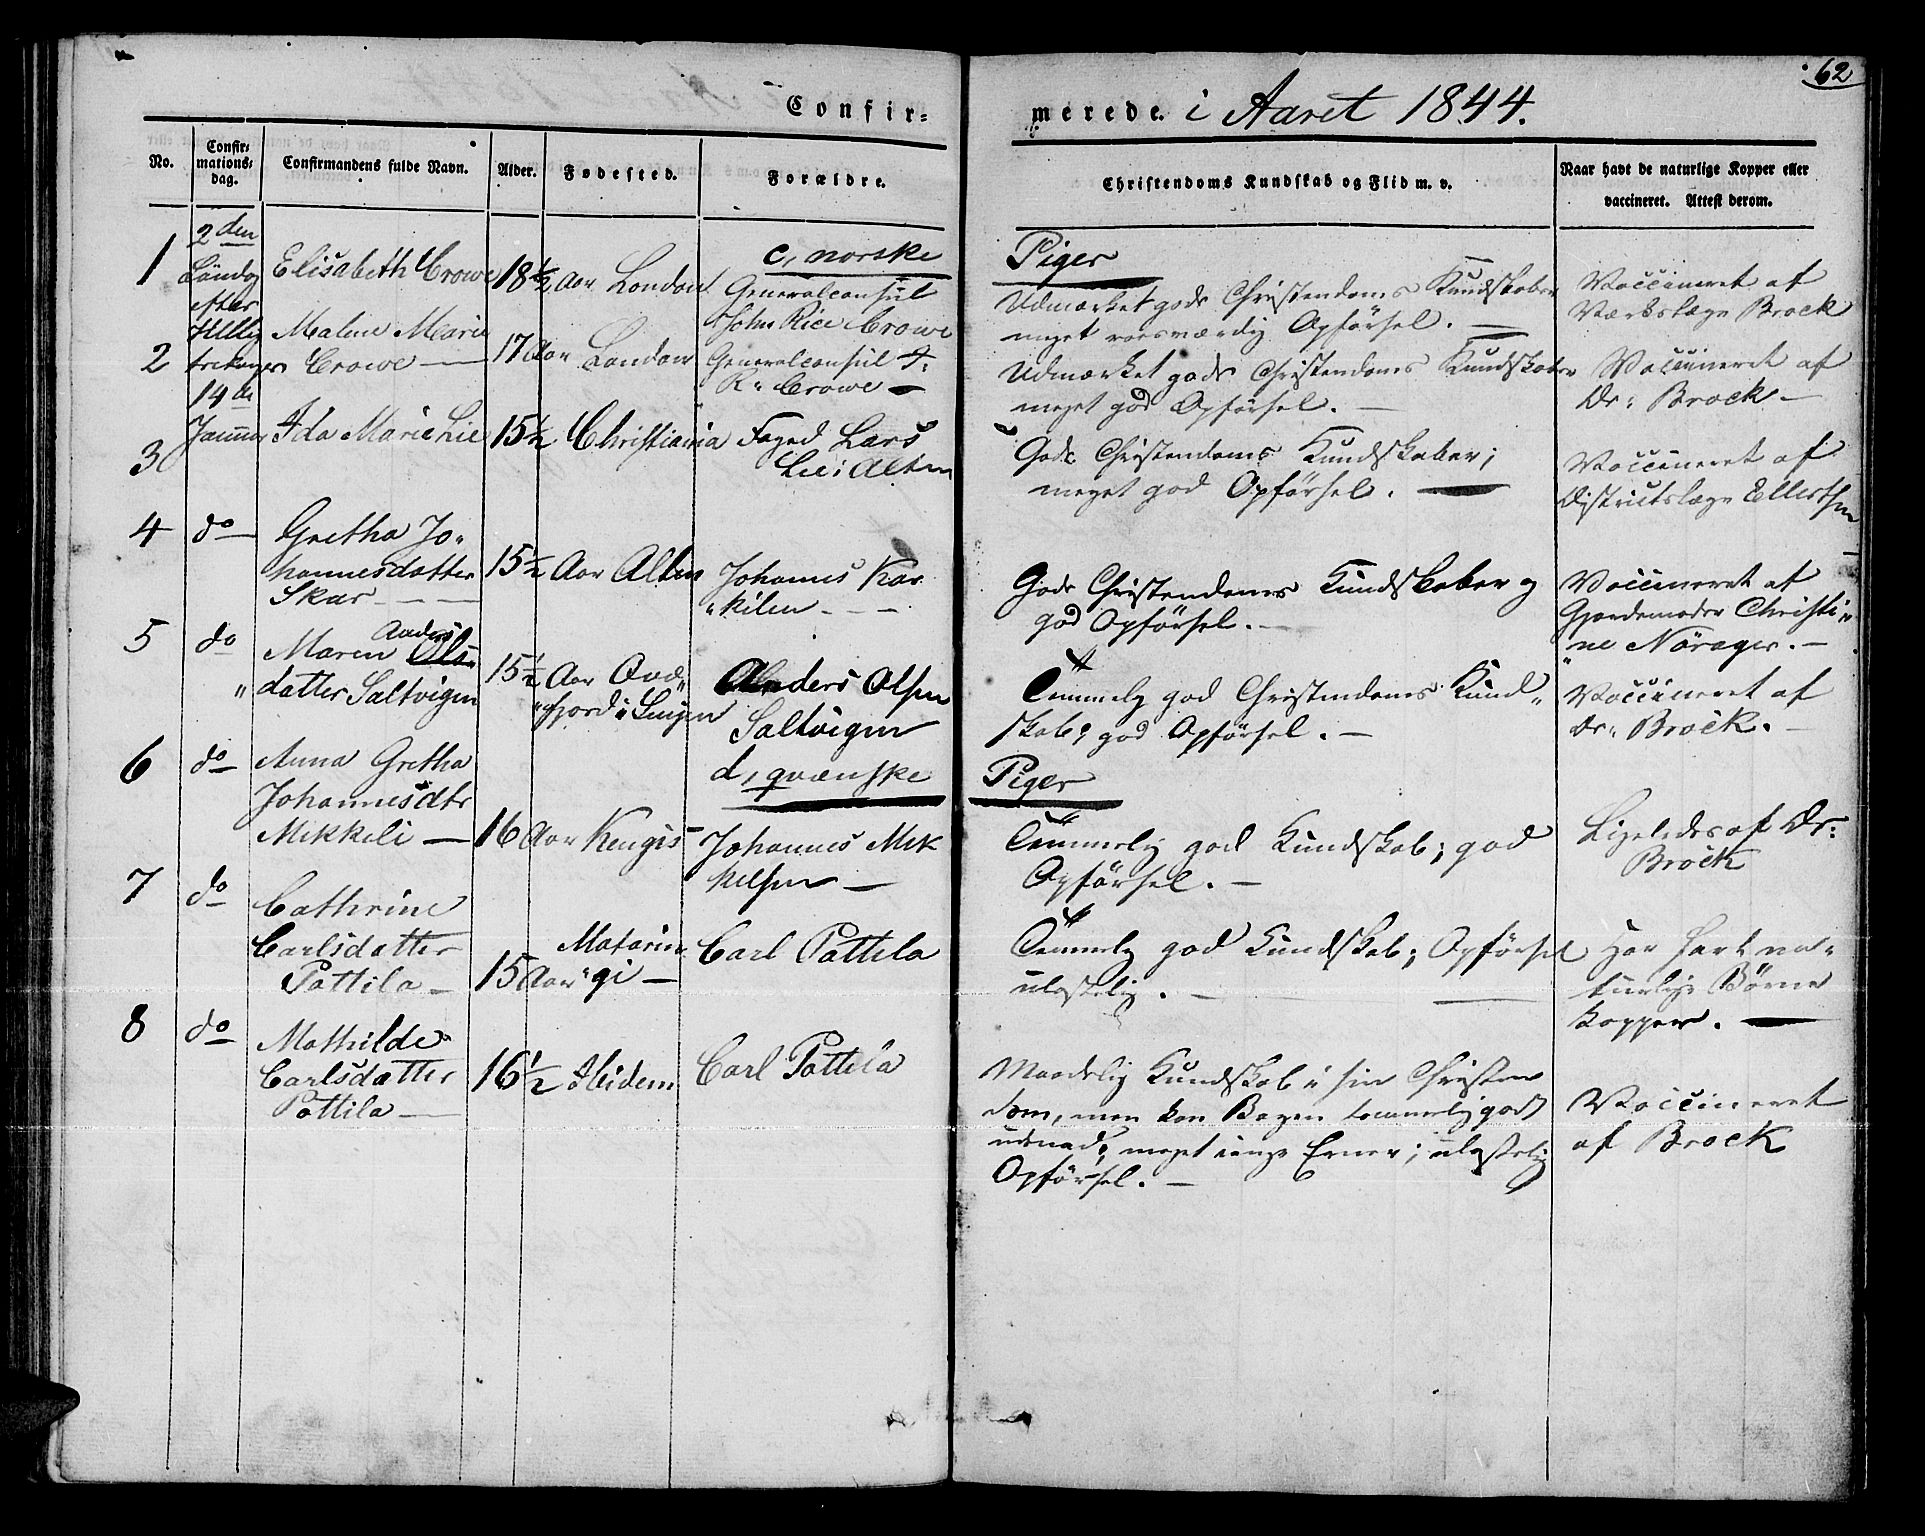 62
Confir-
merede. i Aaret 1844.
No.
Confir-
mations-
dag.
Confirmandens fulde Navn.
Alder.
Fødested.
Forældre.
Christendoms Kundskab og Flid m. v.
Naar havt de naturlige Kopper eller
vaccineret. Attest derom.
c, norske
Piger
1
2den
Søndag
efter
Hellig
trekonger
14de
Januar
Elisabeth Crowe
18½ Aar
London
Generalconsul
John Rice Crowe
Udmærket gode Christendoms Kundskaber
meget roesværdig Opførsel. —
Vaccineret af
Værkslæge Brock
2
Malene Marie
Crowe —
17 Aar
London
Generalconsul J.
R. Crowe —
Udmærket gode Christendoms Kundskaber
meget god Opførsel. —
Vaccineret af
Dr: Brock —
3
Ida Marie Lie
15½
Christiania
Foged Lars
Lie i Alten
Gode Christendoms Kundskaber;
meget god Opførsel. —
Vaccineret af
Districtslæge Ellertsen
4
do
Gretha Jo-
hannesdatter
Skar — —
15½ Aar
Alten
Johannes Kar
"kilen - - -
Gode Christendoms Kundskaber og
god Opførsel. —
Vaccineret af
Gjordemoder Christi-
"ne Nørager. —
5
do
Maren Ols-
Anders
"datter Saltvigen
15½ Aar
Qvæ-
"fjord i Lingen
Anders Olsen
Saltvigen
Temmelig god Christendoms Kund-
skab; god Opførsel. —
Vaccineret af
Dr. Brock. —
d, qvænske
Piger
6
do
Anna Gretha
Johannesdtr
Mikkeli —
16 Aar
Kengis
Johannes Mik
kelsen —
Temmelig god Kundskab; god
Opførsel. —
Ligeledes af Dr:
Brock
7
do
Cathrine
Carlsdatter
Pattila —
15 Aar
Matarin
"gi —
Carl Pattila
Temmelig god Kundskab; Opførsel
ulastelig. —
Har havt na-
turlige Børne
kopper. —
8
do
Mathilde
Carlsdatter
Pattila —
16½
Ibidem
Carl Pattila
Maadelig Kundskab i sin Christen
dom, men kan Bogen temmelig godt
udenad; meget ringe Evner; ulastelig
Opførsel. —
Vaccineret
af Brock